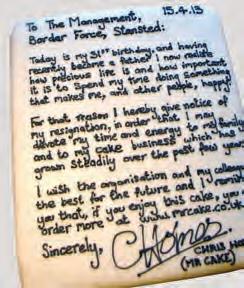 To The Management, 15.4.13
Border Force, Stansted:
Today is my 31st birthday, and having
recently become a father I now realise
how precious life is and how important
it is to spend my time doing something
that makes me, and other people, happy.
For that reason I hereby give notice of
my resignation, in order that I may
devote my time and energy to my family
and to my cake business which has
grown steadily over the past few years
I wish the organisation and my colleagues
the best for the future and I remind
you that, if you enjoy this cake, you can
order more at www.mrcake.co.uk
Sincerely, CHolmes.
CHRIS
(MR CAKE)